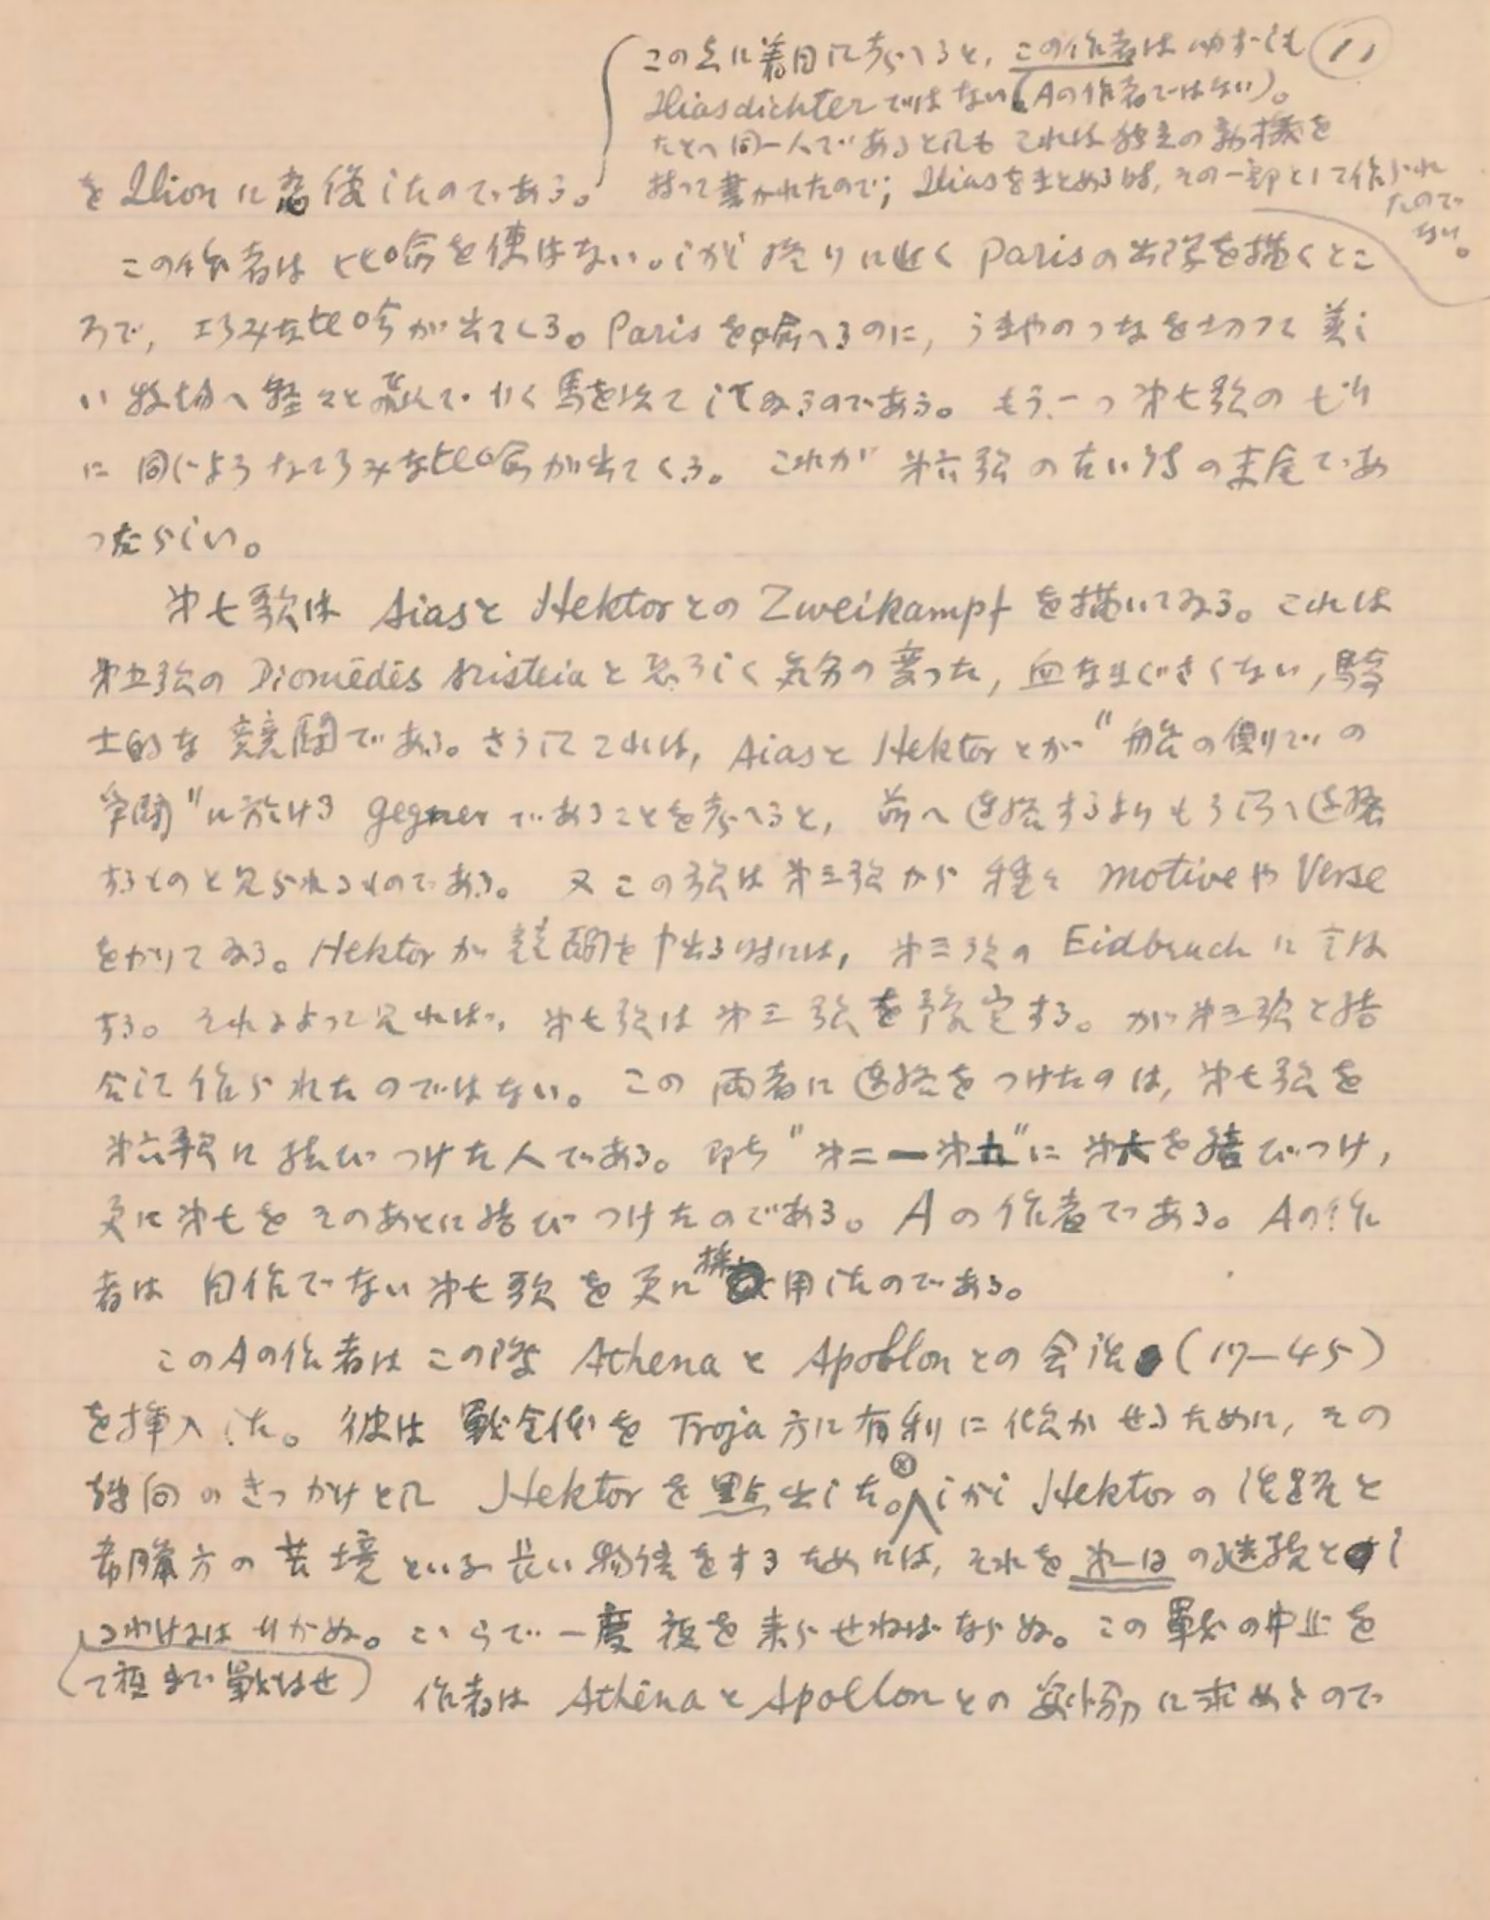 11
この点に着目して考へると, この作者は必ずしも
Iliasdichterではない(Aの作者ではない)。
たとへ同一人であるとしても これは独立の動機を
持って書かれたので; Iliasをまとめる時, その一部として作られ
たので
ない。
を Ilion に 恋後したのである。
この作者は比喩を使はない。しかし終りに近く Parisの出陣を描くとこ
ろで, 巧みな比喩が出てくる。Parisを喩へるのに, うまやのつなを切って美し
い牧場へ軽々と飛んでいく馬を以てしてゐるのである。 もう一つ第七歌の始
に同じような巧みな比喩が出てくる。 これが第六歌の古い詩の末尾であ
ったらしい。
第七歌は AiasとHektorとの Zweikampf を描いてゐる。これは
第五歌の Diomēdēs Aristeiaと恐ろしく気分の変った, 血なまぐさくない, 騎
士的な競闘である。さうしてこれは, AiasとHektorとが"船の側での
争闘"に於ける Gegner であることを考へると, 前へ連絡するよりもうしろへ連絡
するものと見られるものである。 又この歌は第三歌から種々 Motive や Verse
をかりてゐる。Hektorが競闘を申出る時には, 第三歌の Eidbruch に言及
する。それによって見れば, 第七歌は第三歌を予定する。が第三歌と結
合して作られたのではない。この両者に連絡をつけたのは, 第七歌を
第六歌に結びつけた人である。即ち"第二―第五"に第六を結びつけ,
更に第七をそのあとに結びつけたのである。Aの作者である。Aの作
者は自作でない第七歌を更に採用したのである。
このAの作者はこの際 AthenaとApollonとの会話(17―45)
を挿入した。彼は戦全体を Troja方に有利に働かせるために, その
転向のきっかけとして Hektorを點出した。しかしHektorの活躍と
希臘方の苦境といふ長い物語をするためには, それを第一日の継続とし
て夜まで戦はせ
つゞけるわけには行かぬ。こゝらで一度夜を来らせねばならぬ。この戦の中止を
作者は AthēnaとApollonとの妥協に求めたので